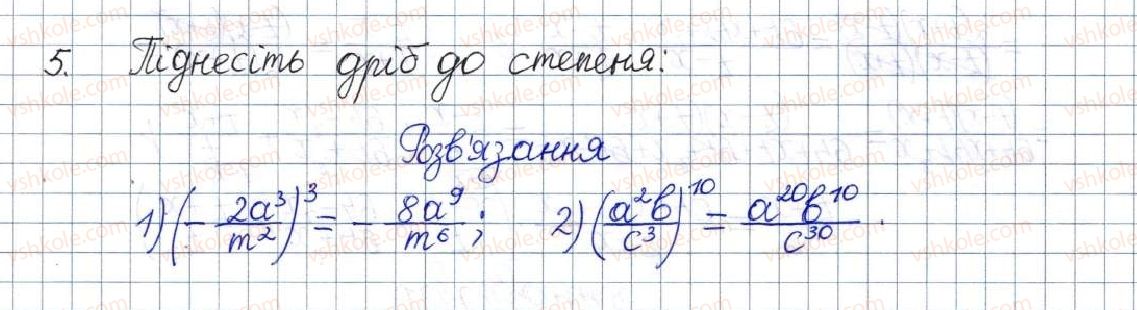 5. Піднесіть дріб до степеня:
Розв'язання
1) (- 2a³/m²)³ = - 8a⁹/m⁶ ; 2) (a²b/c³)¹⁰ = a²⁰b¹⁰/c³⁰ .
vshkole.com